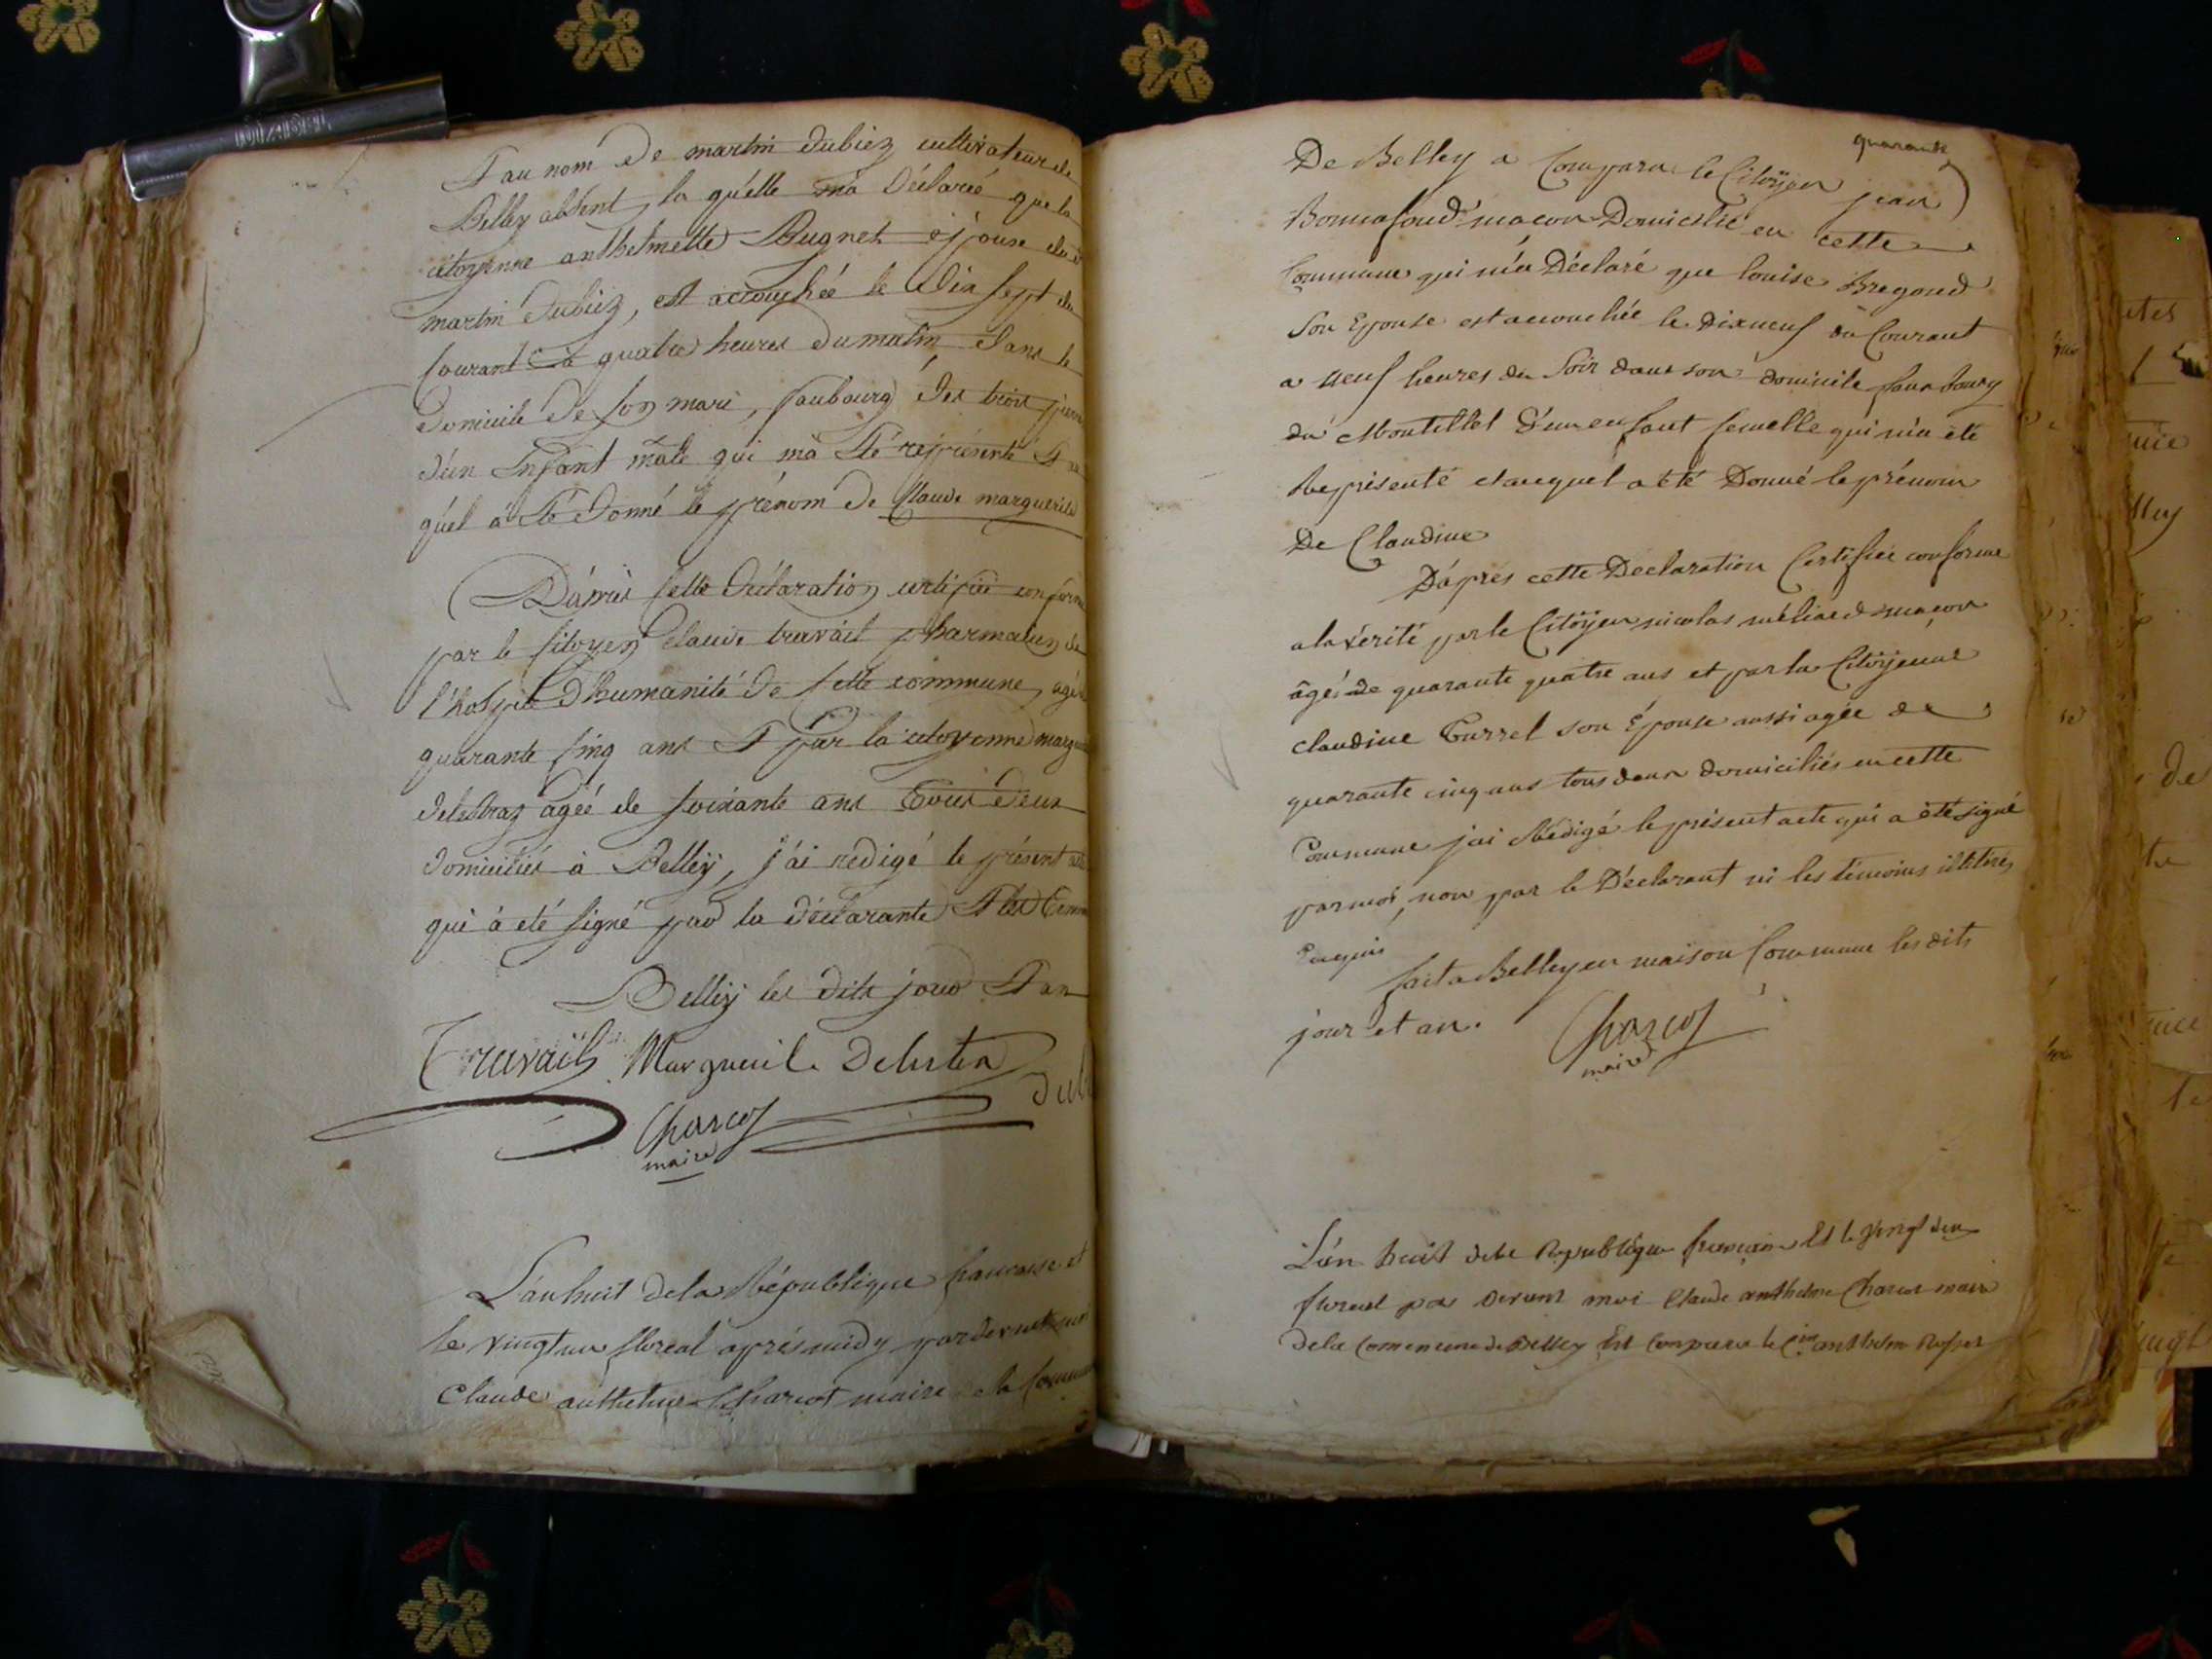 Et au nom de martin dubiez cultivateur de
Belley absent, la quelle m'a Déclaré que la
citoyenne anthelmette Bugnet épouse du d
martin dubiez, est accouchée le dix sept du
Courant à quatre heures du matin, dans le
domicile de son mari, faubourg des trois
d'un Enfant mâle qui m'a été représenté Et au
quel a été donné le prénom de Claude marguerite
D'après cette déclaration certifiée conforme
par le citoyen Claude travail pharmacien de
l'hospice d'humanité de cette commune, agé
quarante cinq ans Et par la citoyenne
delestraz agée de soixante ans tous deux
domiciliés à Belley, j'ai redigé le présent acte
qui à eté signé par la déclarante Et les
Belley les dits jour Et an
Travail Marguerite
Charcot
maire
L'an huit de la République francaise et
le vingt un floreal après midy pardevant
Claude anthelme Charcot maire de la Commune
quarante
De Belley a Comparu le Citoÿen jean
Bonnafoud macon Domicilié en cette
Commune qui m'a Déclaré que louise Bregoud
Son Epouse est accouchée le Dixneuf du Courant
a neuf heures du Soir dans son domicile faux bourg
du Montillet d'un enfant femelle qui m'a été
Représenté et auquel a été Donné le prénom
De Claudine
D'après cette Declaration Certifiée conforme
a la vérité par le Citoÿen nicolas méliand maçon
âgé de quarante quatre ans et par la Citoÿenne
claudine Turrel son Épouse aussi agée de
quarante cinq ans tous deux domiciliés en cette
Commune j'ai Rédigé le présent acte qui a été signé
par moi, non par le Déclarant ni les témoins illitérés
Enquis
fait a Belley en maison Commune les dits
jour et an.
Charcot
maire
L'an huit de la Republique francaise Et le vingt deux
floreal par devant moi Claude anthelme Charcot maire
de la Commune de Belley Est Comparu le Cen anthelme